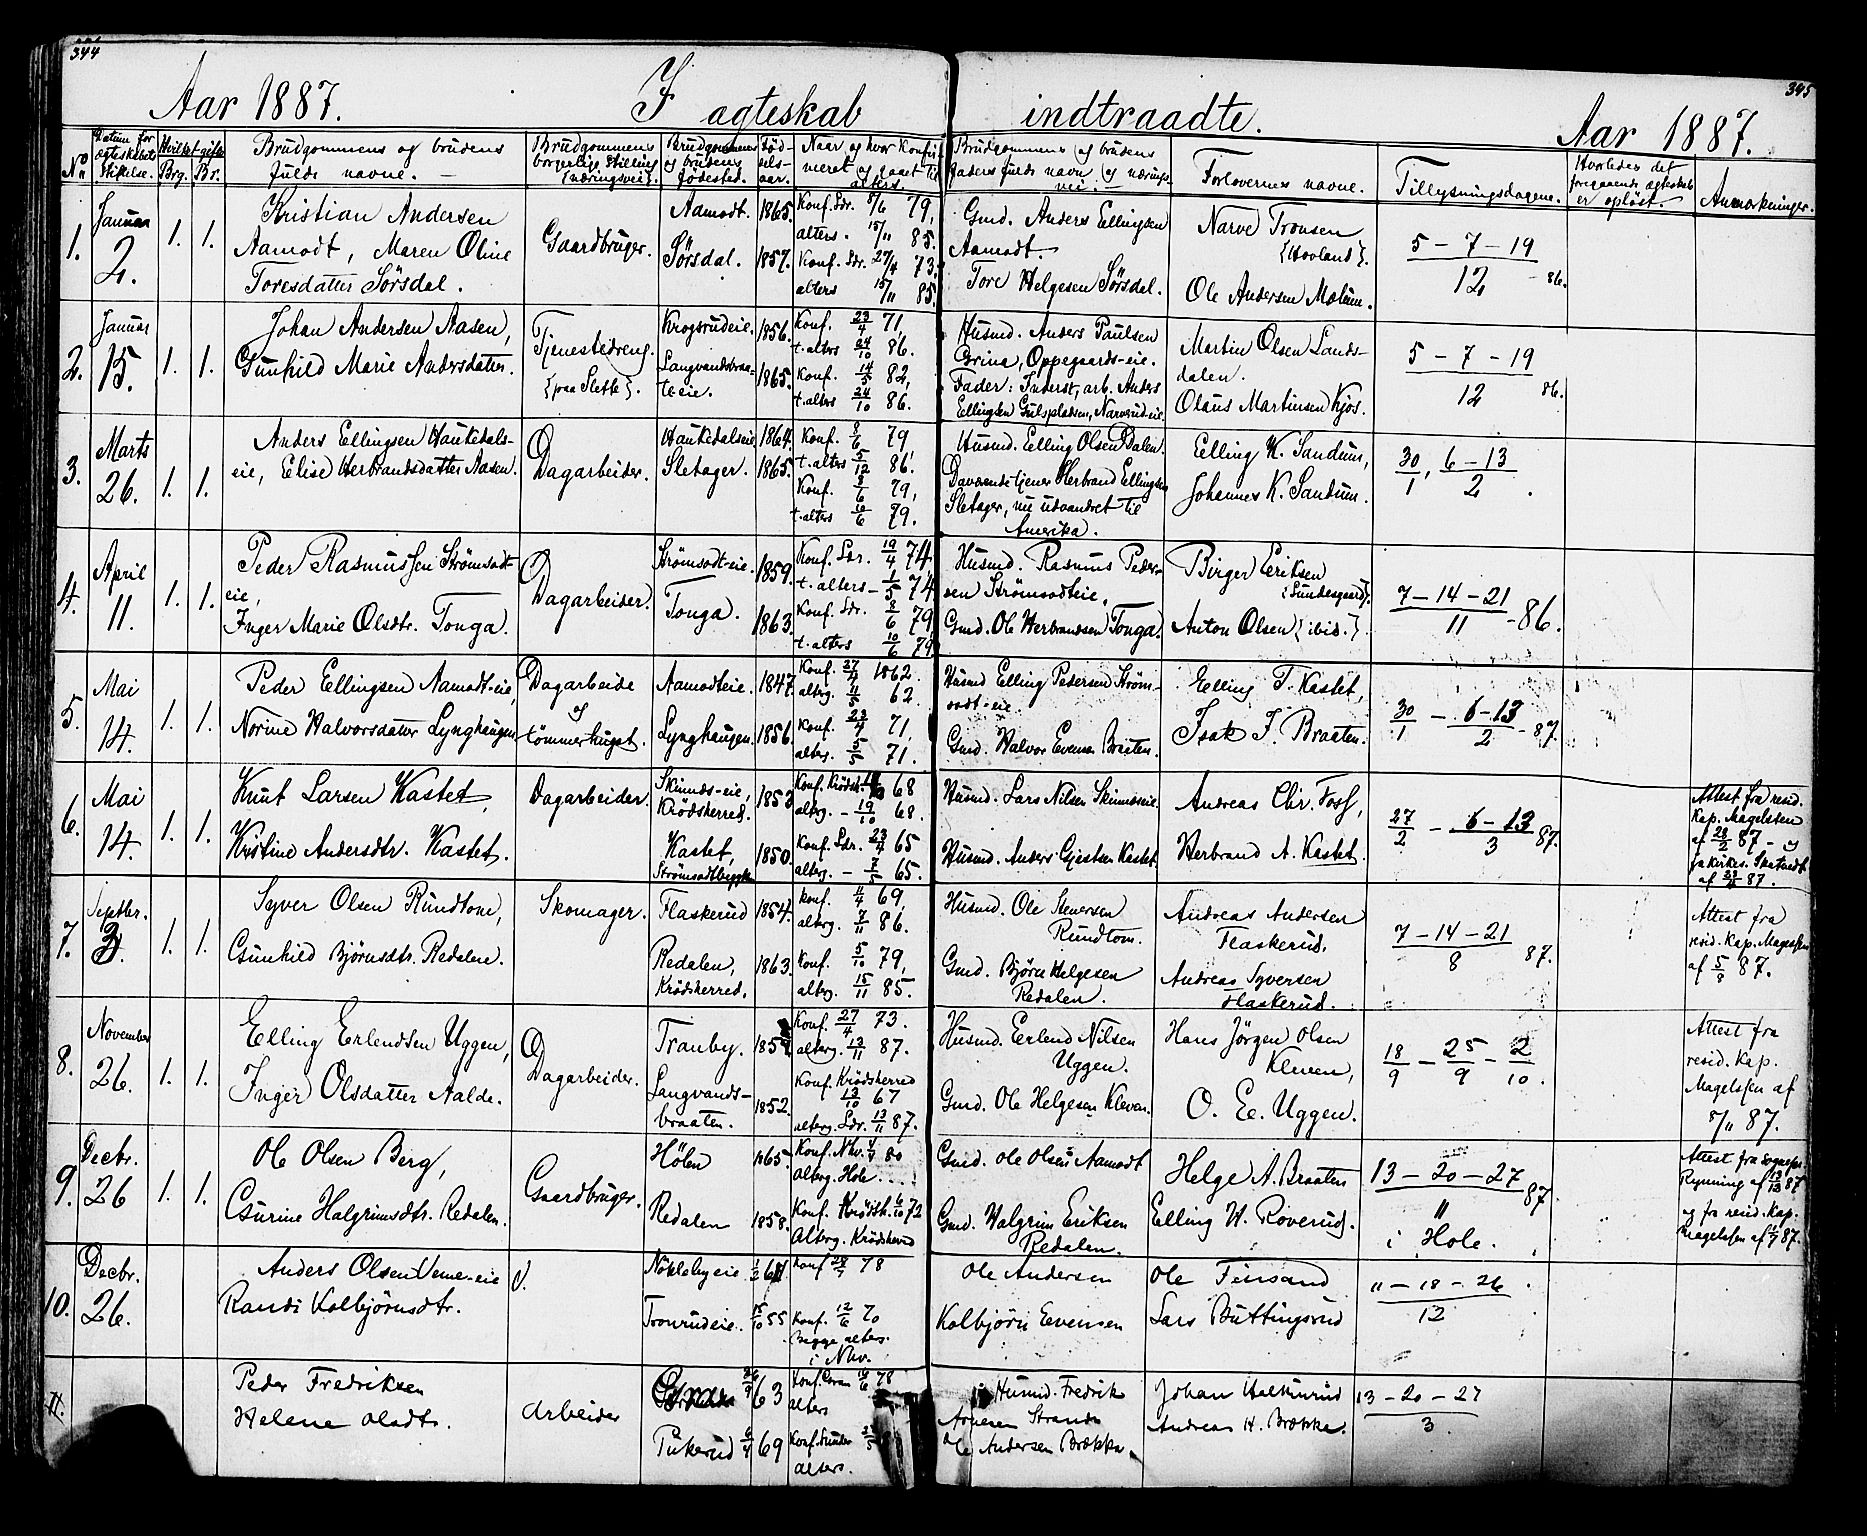 344
345
Aar 1887.
I ægteskab indtraadte.
Aar 1887.
No
Datum for ægteskabets stiftelse.
Hvilket gifte
Brg. Br.
Brudgommens og brudens fulde navne.
Brudgommens borgerlige stilling (næringsvei).
Brudgommens og brudens fødested.
Fød-selsaar.
Naar og hvor konfirmeret og gaaet til alters.
Brudgommens og brudens faders fulde navn og næringsvei.
Forlovernes navne.
Tillysningsdagene.
Hvorledes det foregaaende ægteskab er opløst.
Anmærkninger.
1.
Januar 2.
1. 1.
Kristian Andersen
Aamodt, Maren Oline
Toresdatter Sørsdal.
Gaardbruger.
Aamodt. 1865.
Sørsdal. 1857.
Konf. Sdr. 8/6 79,
alters. 15/11 85.
Konf. Sdr. 27/4 73,
alters 15/11 85.
Gmd. Anders Ellingsen
Aamodt.
Tore Helgesen Sørsdal.
Narve Tronsen
{Hovland}.
Ole Andersen Mælum.
5 - 7 - 19
12 - 86.
2.
Januar 15.
1. 1.
Johan Andersen Aasen,
Gunhild Marie Andersdatter.
Tjenestedreng.
{paa Slette}.
Krogsrudeie. 1856.
Langvandsbraa-
teeie. 1865.
Konf. 23/4 71,
t. alters 24/10 86.
Konf. 14/5 82,
t. alters 24/10 86.
Husmd. Anders Paulsen
Grina, Oppegaards-eie.
Fader: Inderst, arb. Anders
Ellingsen Gulspladsen, Narverud-eie
Martin Olsen Lands-
dalen.
Olaus Martinsen Kjos.
5 - 7 - 19
12 86.
3.
Marts 26.
1. 1.
Anders Ellingsen Haukedals-
eie, Elise Herbrandsdatter Aasen.
Dagarbeider.
Haukedalseie 1864.
Sletager. 1865.
Konf. 8/6 79,
t. alters 5/12 86.
Konf. 8/6 79,
t. alters 10/6 79.
Husmd. Elling Olsen Dalen.
Daværende tjener Herbrand Ellingsen
Sletager, nu udvandret til
Amerika.
Elling K. Sandum,
Johannes K. Sandum.
30/1, 6 - 13
2.
4.
April 11.
1. 1.
Peder Rasmussen Strømsodt
eie,
Inger Marie Olsdtr. Tonga.
Dagarbeider.
Strømsodt-eie. 1859.
Tonga. 1863.
Konf. Sdr. 19/4 74,
t. alters - 1/5 74
Konf. Sdr. 8/6 79,
t. alters 10/6 79.
Husmd. Rasmus Peder-
sen Strømsodteie.
Gmd. Ole Herbrandsen Tonga.
Birger Eriksen
{Lundesgaard}.
Anton Olsen {ibid.}.
7 - 14 - 21
11 - 86.
5.
Mai 14.
1. 1.
Peder Ellingsen Aamodt-eie,
Norine Halvorsdatter Lynghaugen
Dagarbeide
og
tømmerhugst.
Aamodteie. 1847.
Lynghaugen. 1856.
Konf. 27/4 1862.
altg. 11/5 62.
Konf. 23/4 71,
altg. 5/5 71.
Husmd Elling Pedersen Strøm-
sodt-eie.
Gmd. Halvor Evensen Braaten.
Elling T. Kastet,
Isak J. Braaten.
30/1 - 6-13
2 - 87.
6.
Mai 14.
1. 1.
Knut Larsen Kastet,
Kristine Andersdtr. Kastet.
Dagarbeider.
Skinnds-eie,
Krødsherred. 1853
Kastet,
Strømsodtbygden 1850.
Konf. Krødsh. 68
altg. - 19/10 68.
Konf. Sdr. 23/4 65
altg. - 7/5 65.
Husmd. Lars Nilsen Skinndseie.
Husmd. Anders Gjestsen Kastet.
Andreas Chr. Foss,
Herbrand A. Kastet.
27/2 - 6-13
3 87.
Attest fra resid.
Kap. Magelssen
af 28/2 87 - og
af 23/4 87.
7.
Septbr. 3.
1. 1.
Syver Olsen Rundtom,
Gunhild Bjørnsdtr. Redalen.
Skomager.
Flaskerud 1854.
Redalen,
Krødsherred. 1863.
Konf. 11/4 69,
altg. 7/11 86.
Konf. 5/10 79,
altg. 15/11 85.
Husmd. Ole Stenersen
Rundtom.
Gmd. Bjørn Helgesen
Redalen.
Andreas Andersen
Flaskerud,
Andreas Syversen
Flaskerud.
7 - 14 - 21
8 87.
Attest fra
resid. Kap. Magelssen
af 5/8 87.
8.
November 26.
1. 1.
Elling Erlendsen Uggen,
Inger Olsdatter Aalde.
Dagarbeider.
Tranby.
Langvands-
braaten. 1852.
Konf. 27/4 73.
altg. 13/11 87.
Konf. Krødsherred
13/10 67
altg. Sdr. 13/11 87.
Husmd. Erlend Nilsen
Uggen.
Gmd. Ole Helgesen Kleven.
Hans Jørgen Olsen
Kleven,
O. E. Uggen.
18/9 - 25/9 - 2/10.
Attest fra
resid. Kap.
Magelssen af
8/11 87.
9.
Decbr. 26
1. 1.
Ole Olsen Berg,
Gurine Halgrimsdtr. Redalen.
Gaardbruger.
Hølen 1865.
Redalen 1858.
Konf. Nkv. 4/4 80
Altbg. Hole.
Konf. Krødsh. 6/10 72
Altbg. Krødsherred
Gmd. Ole Olsen Aamodt
Gmd. Halgrim Eriksen
Redalen.
Helge A. Braaten
Elling H. Roverud.
13 - 20 - 27
11 87.
i Hole.
Attest fra sognepr.
Rynning af 13/12 87
og fra resid. Kap.
Magelssen af 1/7 87.
10.
Decbr. 26.
Anders Olsen Veme-eie
Randi Kolbjørnsdtr.
Nökleby eie
Tronrudeie. 15/10 55
Konf 28/4 78
Konf. 12/6 70
Begge alters.
i Nkv.
Ole Andersen
Kolbjørn Evensen
Ole Finsand
Lars Buttingsrud
11 - 18 - 26
12
11.
Peder Fredriksen
Helene Olsdtr.
Arbeider
63
Pukerud 6/4 69
alters
alters.
Husmd. Fredrik
Arnesen Strande
Ole Andersen Brække
Johan Halkinrud
Andreas H. Brække.
13 - 20 - 27
3.